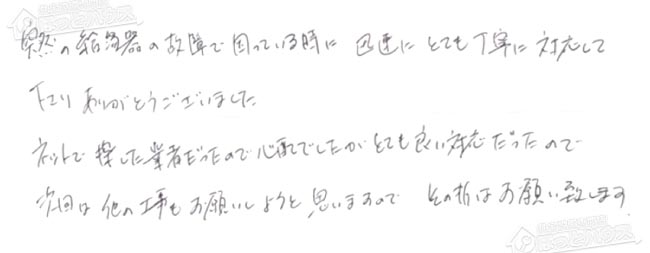 突然の給湯器の故障で困っている時に 迅速に とても丁寧に 対応して
下さり ありがとうございました
ネットで 探した業者だったので心配でしたが とても良い対応だったので
次回は 他の工事もお願いしようと 思いますので その折は お願い致します